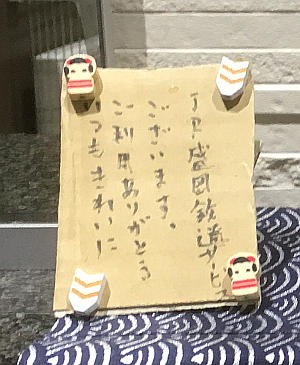 いつもきれいに
ご利用ありがとう
ございます。
JR盛岡鉄道サービ